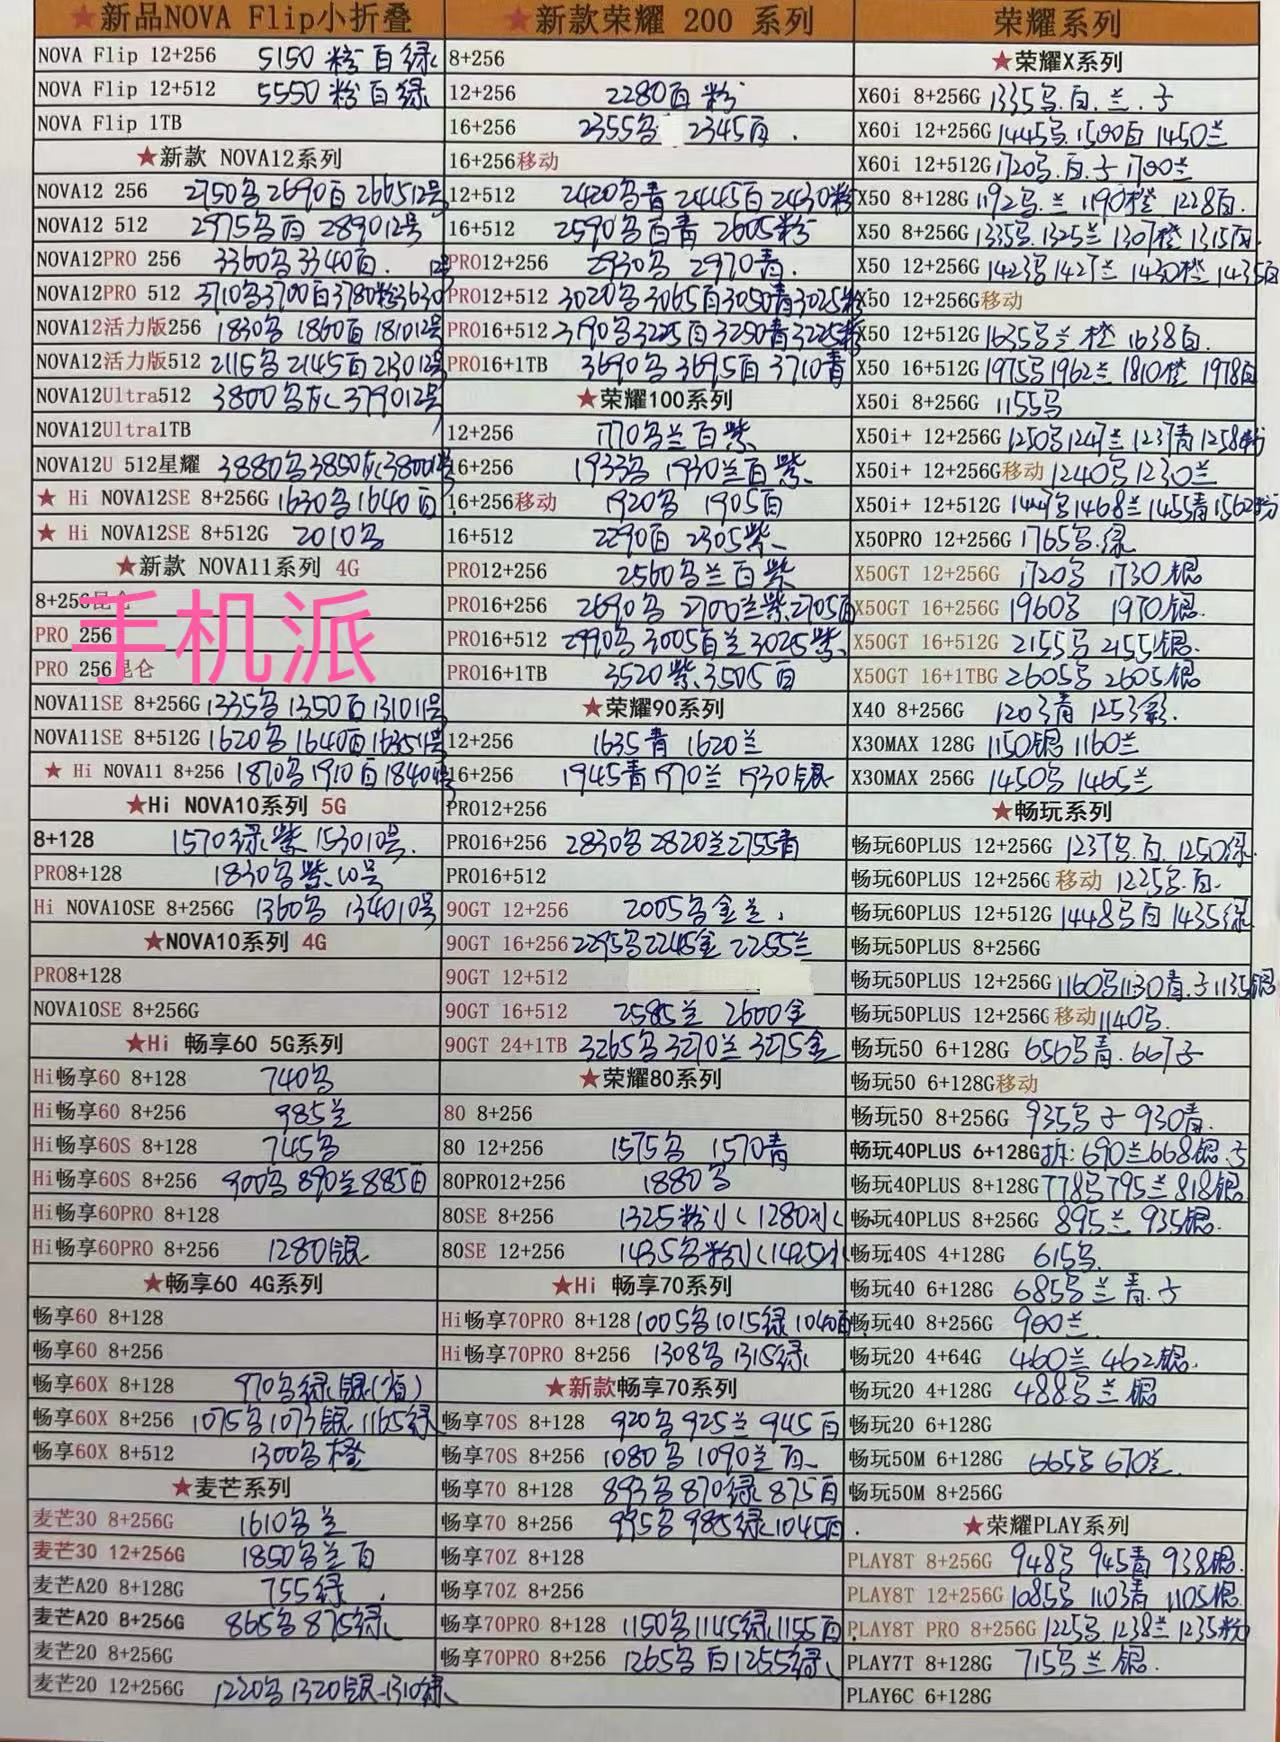 ★新品NOVA Flip小折叠
NOVA Flip 12+256 5150粉白绿
NOVA Flip 12+512 5550粉白绿
NOVA Flip 1TB
★新款 NOVA12系列
NOVA12 256 2750黑2690白266512号
NOVA12 512 2975黑白 289012号
NOVA12PRO 256 3360黑3340白. 12号
NOVA12PRO 512 3710黑3700白3780粉3630
NOVA12活力版256 1830黑 1860白 181012号
NOVA12活力版512 2115黑2145白213012号
NOVA12Ultra512 3800黑灰379012号
NOVA12Ultra1TB
NOVA12U 512星耀 3880黑3850灰380012号
★ Hi NOVA12SE 8+256G 1630黑1640白
★ Hi NOVA12SE 8+512G 2010黑
★新款 NOVA11系列 4G
8+256昆仑
手机派
PRO 256
PRO 256昆仑
NOVA11SE 8+256G 1335黑1350白131011号
NOVA11SE 8+512G 1620黑1640白163511号
★ Hi NOVA11 8+256 1870黑1910白1840
★Hi NOVA10系列 5G
8+128 1570绿紫153010号.
PRO8+128 1830黑紫.10号
Hi NOVA10SE 8+256G 1360黑 134010号
★NOVA10系列 4G
PRO8+128
NOVA10SE 8+256G
★Hi 畅享60 5G系列
Hi畅享60 8+128 740黑
Hi畅享60 8+256 985兰
Hi畅享60S 8+128 745黑
Hi畅享60S 8+256 900黑890兰885白
Hi畅享60PRO 8+128
Hi畅享60PRO 8+256 1280银
★畅享60 4G系列
畅享60 8+128
畅享60 8+256
畅享60X 8+128 970黑绿银(省)
畅享60X 8+256 1075黑1073银1165绿
畅享60X 8+512 1300黑橙
★麦芒系列
麦芒30 8+256G 1610黑兰
麦芒30 12+256G 1850黑兰白
麦芒A20 8+128G 755绿
麦芒A20 8+256G 865黑875绿
麦芒20 8+256G
麦芒20 12+256G 1220黑1320银1310绿
★新款荣耀 200 系列
8+256
12+256 2280白粉
16+256 2355黑 2345白.
16+256移动
12+512 2420黑青 2445白2430粉
16+512 2590黑白青 2605粉
PRO12+256 2930黑 2970青.
PRO12+512 3020黑3065白3050青3025粉
PRO16+512 3190黑3225白3250青3225粉
PRO16+1TB 3690黑3695白3710青
★荣耀100系列
12+256 1770黑兰白紫
16+256 1933黑 1930兰白紫.
16+256移动 1920黑 1905白
16+512 2290白2305紫
PRO12+256 2560黑兰白紫
PRO16+256 2690黑 2700兰紫2705白
PRO16+512 2990黑3005白兰3025紫.
PRO16+1TB 3520紫.3505白
★荣耀90系列
12+256 1635青 1620兰
16+256 1945青1970兰 1930银
PRO12+256
PRO16+256 2830黑2820兰2755青
PRO16+512
90GT 12+256 2005黑金兰.
90GT 16+256 2295黑2245金2255兰
90GT 12+512
90GT 16+512 2585兰 2600金
90GT 24+1TB 3265黑3270兰3275金
★荣耀80系列
80 8+256
80 12+256 1575黑 1570青
80PRO12+256 1880黑
80SE 8+256 1325粉 1280
80SE 12+256 1435黑粉 1425
★Hi 畅享70系列
Hi畅享70PRO 8+128 1005黑1015绿1040白
Hi畅享70PRO 8+256 1308黑1315绿
★新款畅享70系列
畅享70S 8+128 920黑925兰945白
畅享70S 8+256 1080黑1090兰白
畅享70 8+128 893黑870绿875白
畅享70 8+256 995黑985绿1045白.
畅享70Z 8+128
畅享70Z 8+256
畅享70PRO 8+128 1150黑1145绿1155白.
畅享70PRO 8+256 1265黑白1255绿
荣耀系列
★荣耀X系列
X60i 8+256G 1335黑.白.兰.子
X60i 12+256G 1445黑.1500白1450兰
X60i 12+512G 1720黑.白.子1700兰
X50 8+128G 1192黑.兰1190橙 1228白.
X50 8+256G 1335黑.1325兰1307橙1315白.
X50 12+256G 1423黑1427兰1430橙1435白
X50 12+256G移动
X50 12+512G 1635黑兰橙 1638白.
X50 16+512G 1975黑1962兰1810橙 1978白
X50i 8+256G 1155黑
X50i+ 12+256G 1250黑1247兰1237青1258粉
X50i+ 12+256G移动 1240黑1230兰
X50i+ 12+512G 黑1468兰1455青1562粉
X50PRO 12+256G 1765黑.绿
X50GT 12+256G 1720黑 1730银
X50GT 16+256G 1960黑 1970银.
X50GT 16+512G 2155黑2155银.
X50GT 16+1TBG 2605黑2605银
X40 8+256G 1203青 1253彩.
X30MAX 128G 1150银1160兰
X30MAX 256G 1450黑1465兰
★畅玩系列
畅玩60PLUS 12+256G 1237黑.白.1250绿
畅玩60PLUS 12+256G 移动 1225黑.白.
畅玩60PLUS 12+512G 1448黑白1435绿
畅玩50PLUS 8+256G
畅玩50PLUS 12+256G 1160黑1130青.子1135银
畅玩50PLUS 12+256G 移动1140黑.
畅玩50 6+128G 656黑青.667子
畅玩50 6+128G移动
畅玩50 8+256G 935黑子930青.
畅玩40PLUS 6+128G拆:690兰668银.子
畅玩40PLUS 8+128G 778黑795兰818银
畅玩40PLUS 8+256G 895兰935银.
畅玩40S 4+128G 615黑
畅玩40 6+128G 685黑兰青.子
畅玩40 8+256G 900兰
畅玩20 4+64G 460兰462银.
畅玩20 4+128G 488黑兰银
畅玩20 6+128G
畅玩50M 6+128G 665黑670兰
畅玩50M 8+256G
★荣耀PLAY系列
PLAY8T 8+256G 948黑945青938银.
PLAY8T 12+256G 1085黑1103青 1105银.
PLAY8T PRO 8+256G 1225黑.1238兰1235粉
PLAY7T 8+128G 715黑兰银.
PLAY6C 6+128G